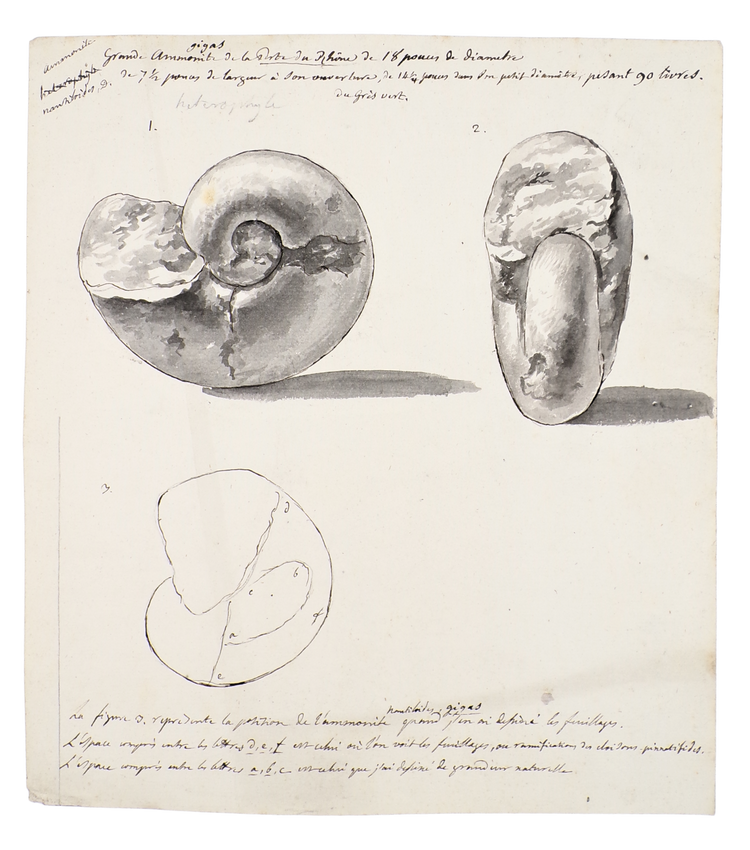 ammonite
heterophyle
nautiloides, D.
gigas
Grande Ammonite de la Perte du Rhône de 18 pouces de diametre
de 7 1/2 pouces de largeur à son ouverture, de 14 1/4 pouces dans son petit diamètre, pesant 90 livres.
heterophyle
du Grès vert.
1.
2.
3.
d
b
c
f
a
e
nautiloides, gigas
La figure 3. représente la position de l'ammonite quand j'en ai dessiné les feuillages.
L'Espace compris entre les lettres d, e, f est celui où l'on voit les feuillages, ou ramifications des cloisons pinnatifides.
L'Espace compris entre les lettres a, b, c est celui que j'ai dessiné de grandeur naturelle.